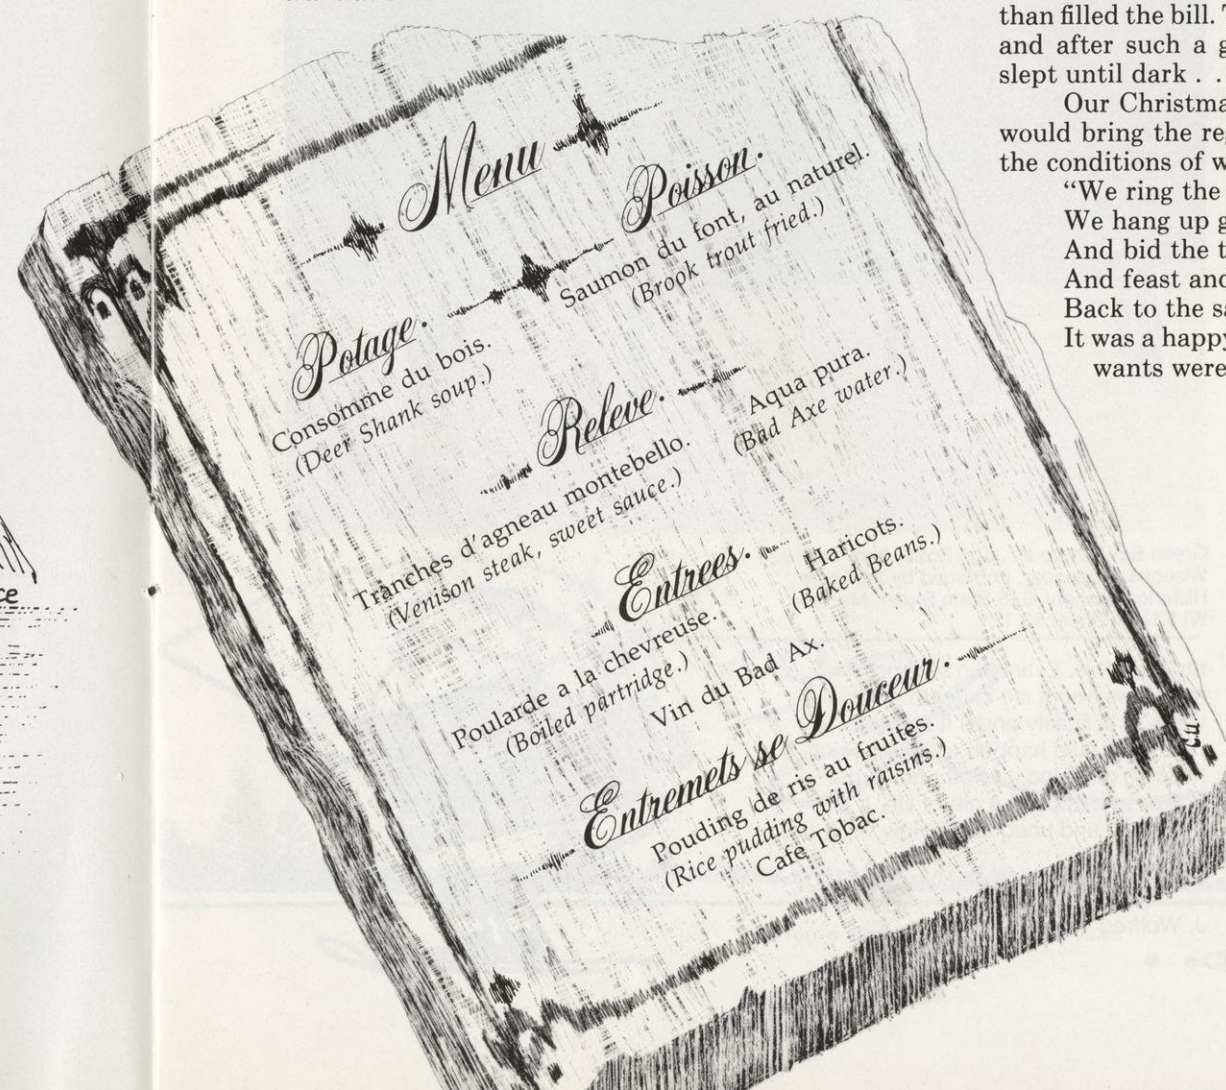 than filled the bill.
and after such a
slept until dark . .
Our
would bring the
the conditions of
“We ring the
We hang up
And bid the
And feast
Back to the
It was a
wants were
Menu
Potage.
Consomme du bois.
(Deer Shank soup.)
Poisson.
Saumon du font, au naturel.
(Brook trout fried.)
Releve.
Tranches d'agneau montebello.
(Venison steak, sweet sauce.)
Aqua pura.
(Bad Axe water.)
Entrees.
Poularde a la chevreuse.
(Boiled partridge.)
Haricots.
(Baked Beans.)
Vin du Bad Ax.
Entremets se Douceur.
Pouding de ris au fruites.
(Rice pudding with raisins.)
Cafe Tobac.